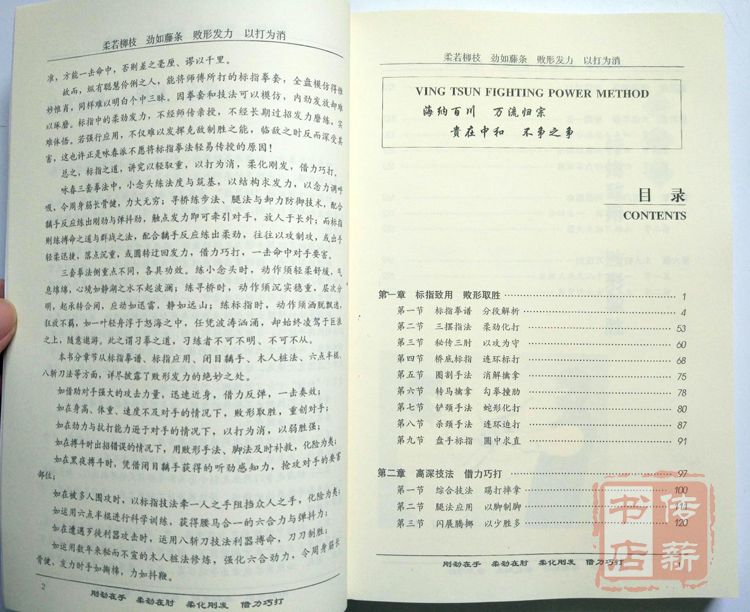 柔若柳枝 劲如藤条 败形发力 以打为消
准，方能一击命中，否则差之毫厘、谬以千里。
故而，纵有聪慧伶俐之人，能将师傅所打的标指拳套，全盘模仿得惟
妙惟肖，同样难以明白个中三昧。因拳套和技法可以模仿，内劲发放却难
以琢磨。标指中的柔劲发力，不经师传亲授，不经长期过招发力磨练，实
难体悟。若强行应用，不仅难以发挥克敌制胜之能，临敌之时反而深受其
害，这也许正是咏春派不愿将标指拳法轻易传授的原因！
总之，标指之道，讲究以轻驭重，以打为消，柔化刚发，借力巧打。
咏春三套拳法中，小念头练法度与筑基，以结构求发力，以念力调呼
吸，令周身筋长骨健，力大无穷；寻桥练步法、腿法与卸力防御技术，配合
黐手反应练出刚劲与弹抖劲，触点发力即可牵引对手，放人于长外；而标指
则练搏命之道与群战之法，配合黐手反应练出柔劲，往往以攻制攻，或出手
轻柔迅捷，落点沉重，或圆转迂回发力，借力巧打，一击命中对手要害。
三套拳法侧重点不同，各具功效。练小念头时，动作须轻柔舒缓，气
息绵绵，心境如静湖之水不起波澜；练寻桥时，动作须沉实稳重，层次分
明，起承转合间，应动如迅雷，静如远山；练标指时，动作须洒脱飘逸，
狂放不羁，如一叶轻舟浮于怒海之中，任凭波涛汹涌，却始终凌驾于巨浪
之上，随意遨游。此之谓习拳之道，习练者不可不明、不可不从。
本书分章节从标指拳谱、标指应用、闭目黐手、木人桩法、六点半棍、
八斩刀法等方面，详尽披露了败形发力的绝妙之处。
如借助对手强大的攻击力量，迅速近身，借力反弹，一击奏效；
如在身高、体重、速度不及对手的情况下，败形取胜，重创对手；
如在劲力与抗打能力逊于对手的情况下，以打为消，以弱胜强；
如在搏斗时出招错误的情况下，用败形手法、脚法及时补救，化险为夷；
如在黑夜搏斗时，凭借闭目黐手获得的听劲感知力，抢攻对手的要害
部位；
如在被多人围攻时，以标指技法牵一人之手阻挡众人之手，化险为夷；
如运用六点半棍进行科学训练，获得腰马合一的六合力与弹抖力；
如在遭遇歹徒利器攻击时，运用八斩刀技法利器搏命，刀刀制胜；
如运用数年来秘而不宣的木人桩法修炼，强化六合劲力，令周身筋长
骨健，发力时手如掷棉，力如抖鞭。
2
刚劲在手 柔劲在肘 柔化刚发 借力巧打
柔若柳枝 劲如藤条 败形发力 以打为消
VING TSUN FIGHTING POWER METHOD
海纳百川 万流归宗
贵在中和 不争之争
目 录
CONTENTS
第一章 标指致用 败形取胜 1
第一节 标指拳谱 分段解析 4
第二节 三摆指法 柔劲化打 53
第三节 秘传三肘 以攻为守 60
第四节 桥底标指 连环标打 68
第五节 圈割手法 消解擒拿 75
第六节 转马擒拿 勾拳撞肋 78
第七节 铲颈手法 蛇形化打 80
第八节 杀颈手法 连环连打 87
第九节 盘手标指 圈中求直 91
第二章 高深技法 借力巧打 97
第一节 综合技法 踢打摔拿 100
第二节 腿法应用 以脚制脚 111
第三节 闪展腾挪 以少胜多 120
传薪
书店
刚劲在手 柔劲在肘 柔化刚发 借力巧打